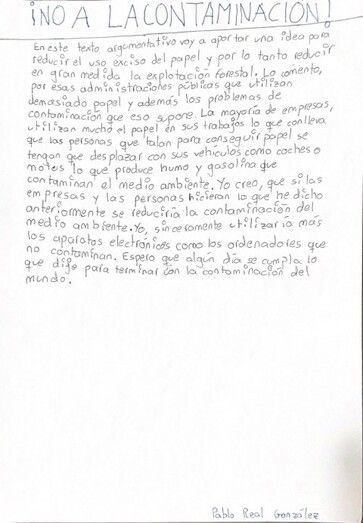 ¡NO A LA CONTAMINACIÓN!
En este texto argumentativo voy a aportar una idea para
reducir el uso exciso del papel y por lo tanto reducir
en gran medida la explotación forestal. Lo comento,
por esas administraciones públicas que utilizan
demasiado papel y además los problemas de
contaminación que eso supone. La mayoría de empresas,
utilizan mucho el papel en sus trabajos lo que conlleva
que las personas que talan para conseguir papel se
tengan que desplazar con sus vehículos como coches o
motos lo que produce humo y gasolina que
contaminan el medio ambiente. Yo creo, que si las
empresas y las personas hicieran lo que he dicho
anteriormente se reduciría la contaminación del
medio ambiente. Yo, sinceramente utilizaría más
los aparatos electrónicos como los ordenadores que
no contaminan. Espero que algún día se cumpla lo
que dije para terminar con la contaminación del
mundo.
Pablo Real González